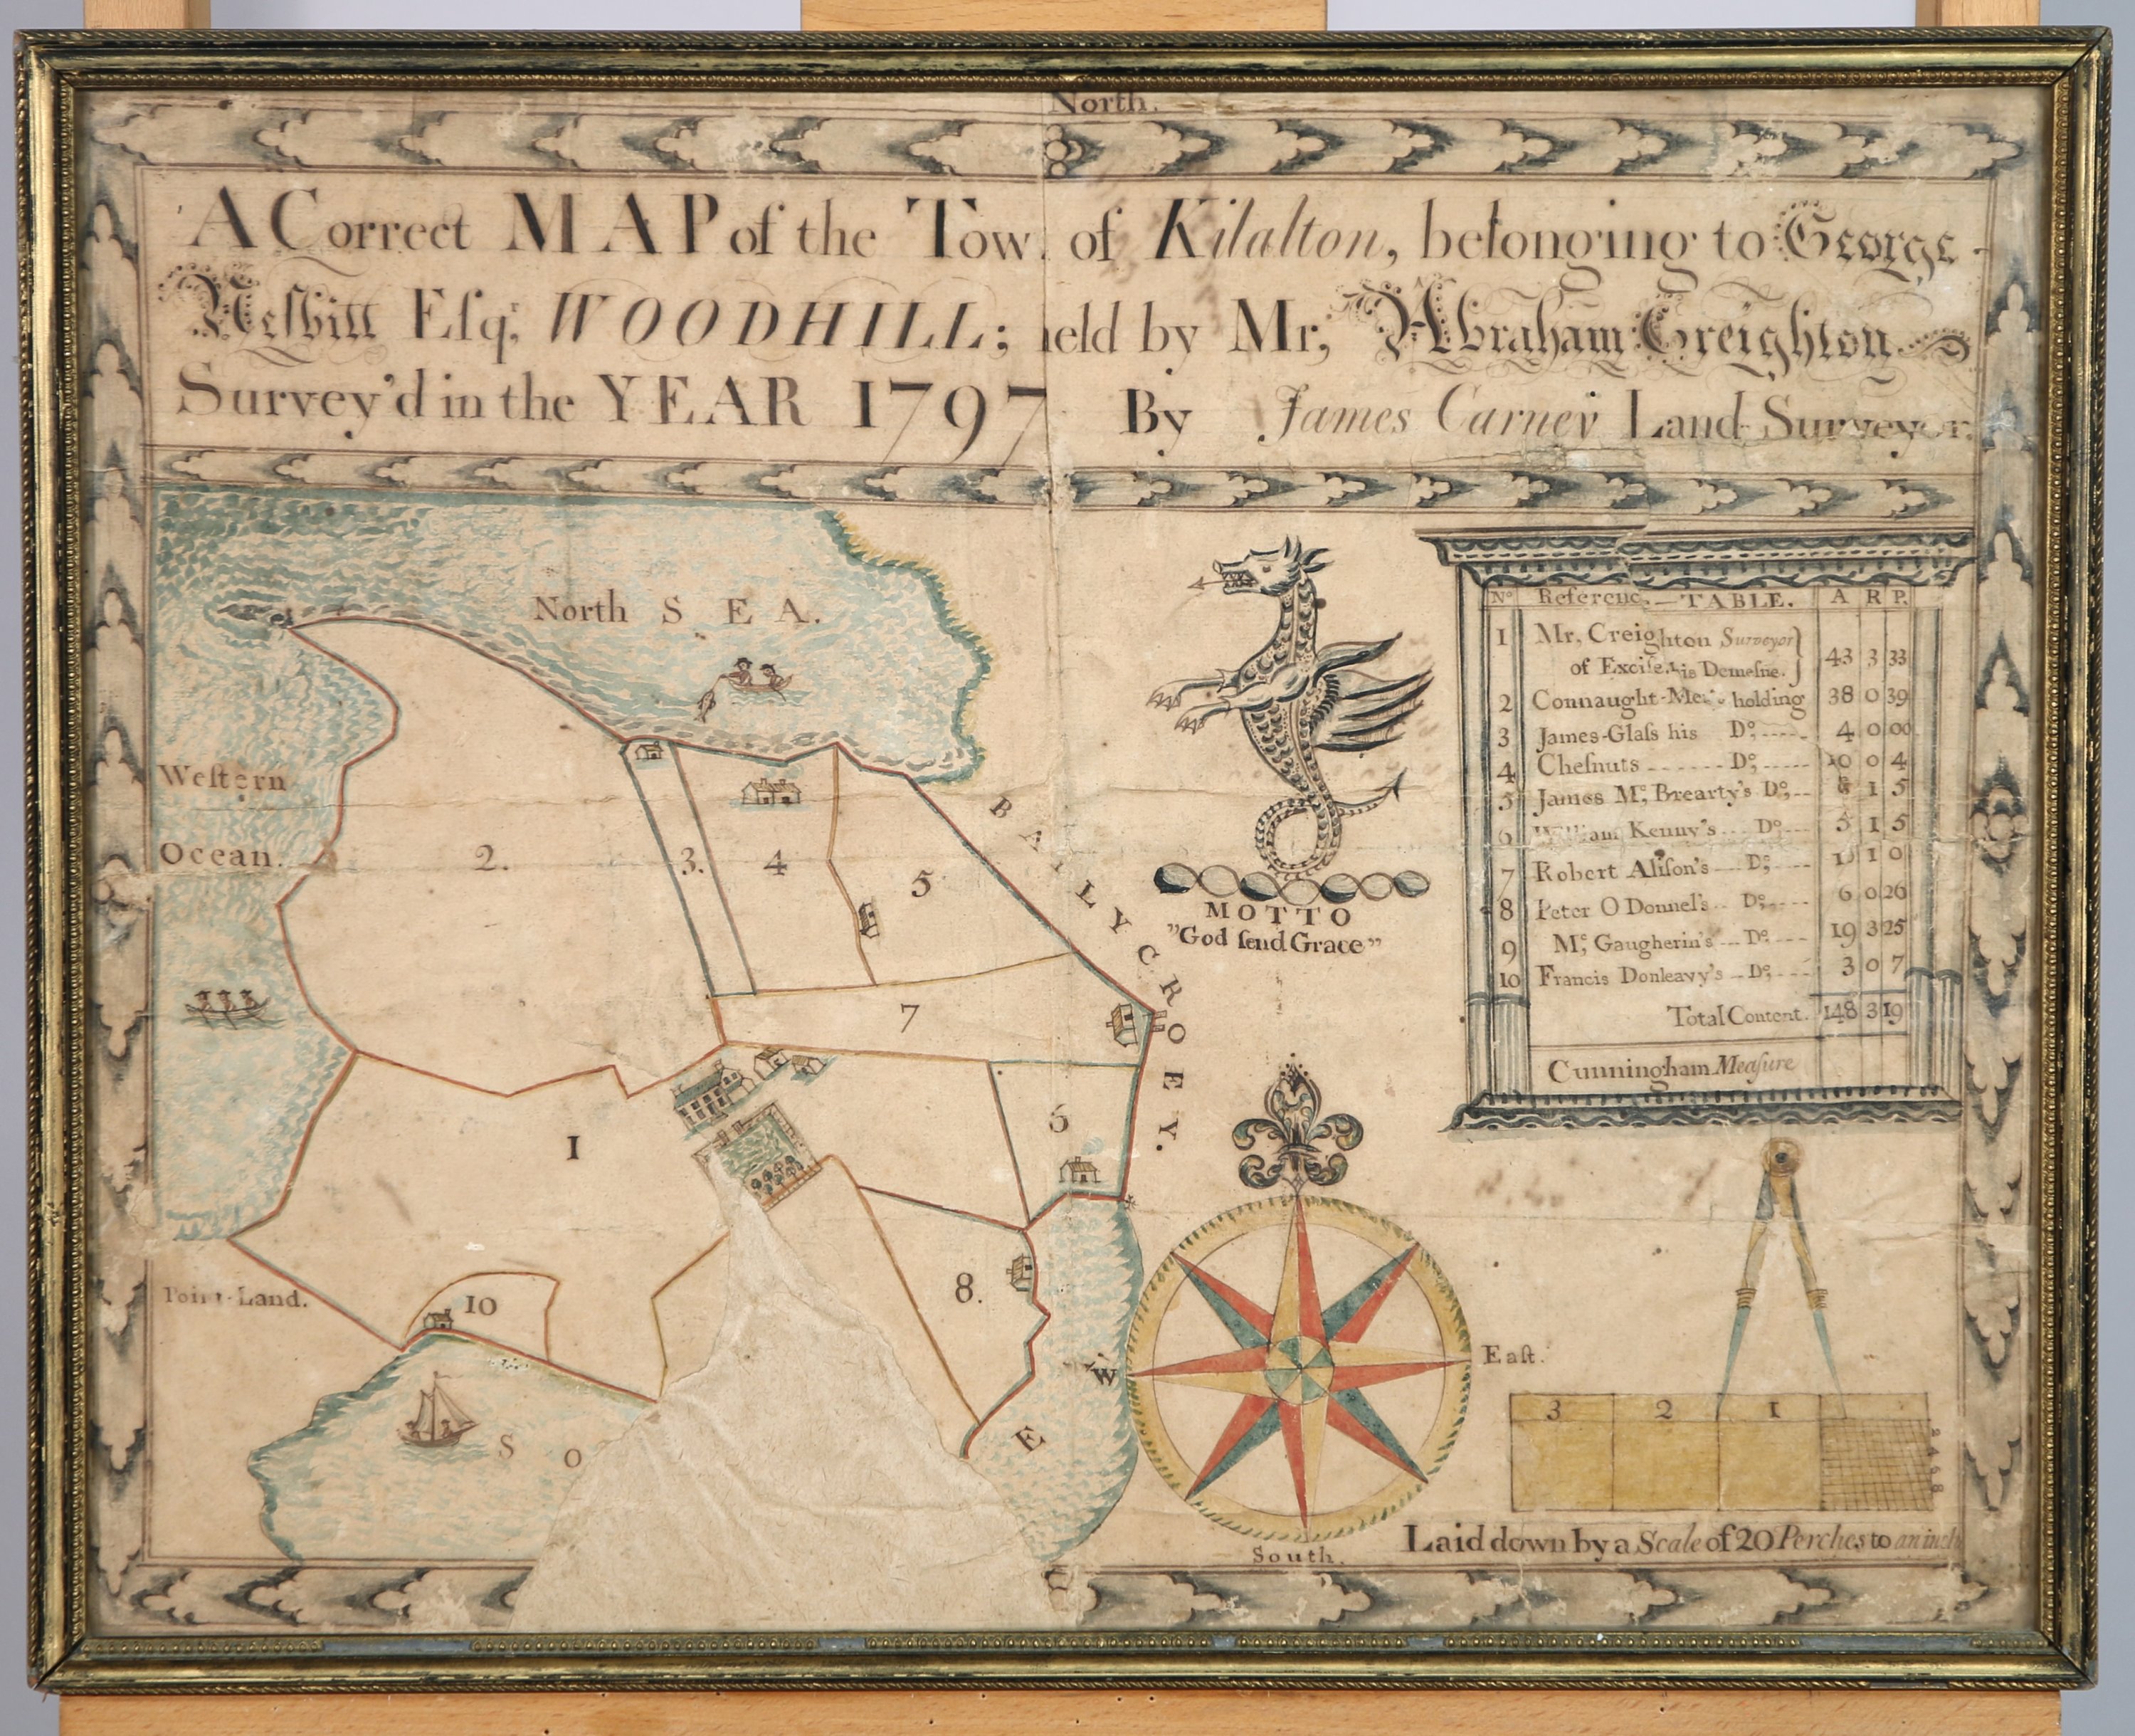 North.
A Correct MAP of the Tow of Kilalton, belonging to George
Nesbitt Eſqr, WOODHILL; held by Mr, Abraham Creighton
Survey'd in the YEAR 1797 By James Carney Land-Surveyor.
North SEA.
Weſtern
Ocean.
BAILYCROEY.
2.
3.
4
5
7
1
6
8.
10
Point-Land.
S O
E
MOTTO
"God ſend Grace"
No Referenc. — TABLE. A R P.
1 Mr, Creighton Surveyor
of Exciſe his Demeſne. 43 3 33
2 Connaught-Me holding 38 0 39
3 James-Glaſs his Do, 4 0 00
4 Cheſnuts Do, 10 0 4
5 James Mc, Brearty's Do, 8 1 5
6 William Kenny's Do 5 1 5
7 Robert Aliſon's Do, 1 0
8 Peter O Donnel's Do, 6 0 26
9 Mc, Gaugherin's Do 19 3 25
10 Francis Donleavy's Do, 3 0 7
Total Content. 148 3 19
Cunningham Meaſure
W
Eaſt.
South.
3 2 1
2 4 6 8
Laid down by a Scale of 20 Perches to an inch